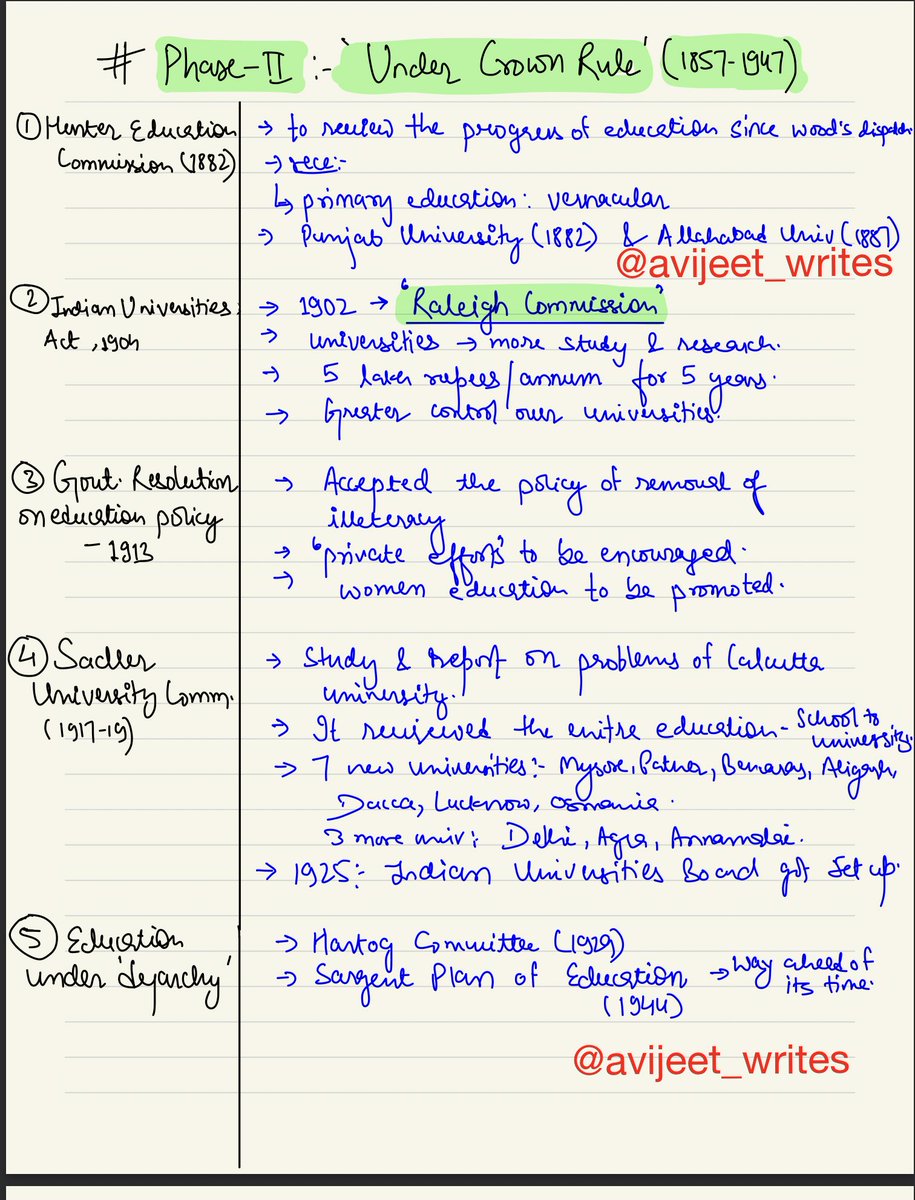 # Phase-II :- 'Under Crown Rule' (1857-1947)
① Hunter Education
Commission (1882)
→ to review the progress of education since wood's dispatch.
→ rece:-
↳ primary education: vernacular
→ Punjab University (1882) & Allahabad Univ (1887)
@avijeet_writes
② Indian Universities
Act, 1904
→ 1902 → 'Raleigh Commission'
→ universities → more study & research.
→ 5 lakh rupees/annum for 5 years.
→ Greater control over universities.
③ Govt. Resolution
on education policy
- 1913
→ Accepted the policy of removal of
illeteracy
→ 'private efforts' to be encouraged.
→ women education to be promoted.
④ Sadler
University Comm.
(1917-19)
→ Study & report on problems of Calcutta
university.
→ It reviewed the enitre education - School to
university.
→ 7 new universities:- Mysore, Patna, Benaras, Aligarh,
Dacca, Lucknow, Osmania.
3 more univ: Delhi, Agra, Annamalai.
→ 1925:- Indian Universities Board got set up.
⑤ Education
under 'Dyarchy'
→ Hartog Committee (1929)
→ Sargent Plan of Education → Way ahead of
its time.
(1944)
@avijeet_writes